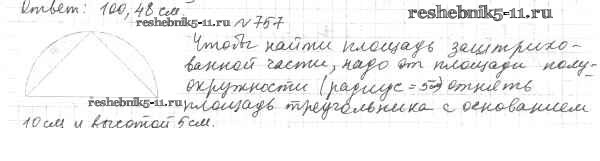 Ответ: 100,48 см
reshebnik5-11.ru
№757
reshebnik5-11.ru
Чтобы найти площадь заштрихо-
ванной части, надо от площади полу-
окружности (радиус = 5см) отнять
reshebnik5-11.ru
площадь треугольника с основанием
10 см и высотой 5 см.